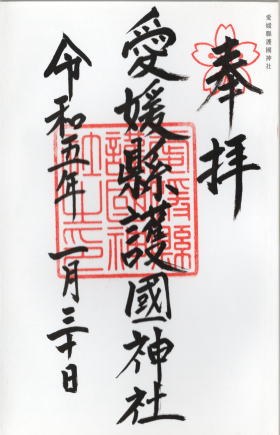 愛媛縣護國神社
奉拝
愛媛縣護國神社
令和五年 一月三十日